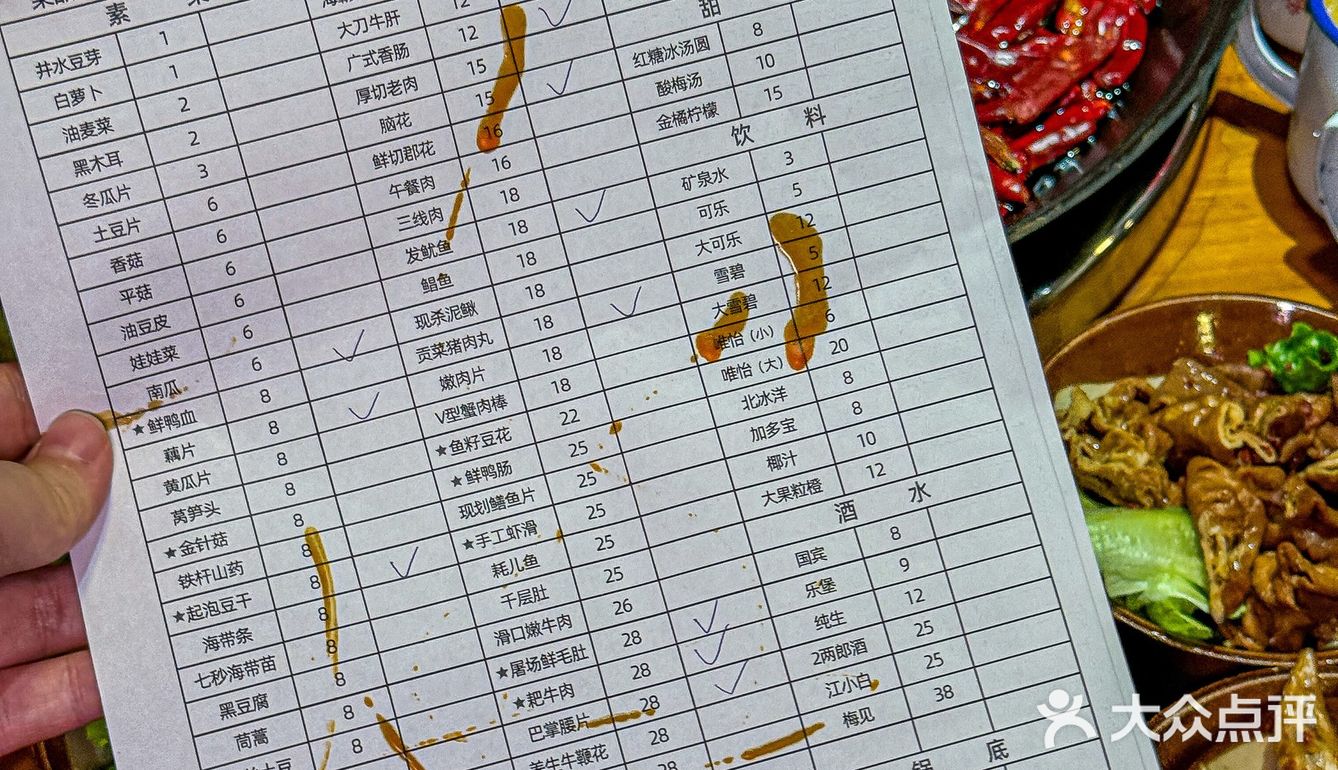 素 菜
井水豆芽 1
白萝卜 1
油麦菜 2
黑木耳 2
冬瓜片 3
土豆片 6
香菇 6
平菇 6
油豆皮 6
娃娃菜 6
南瓜 6
★鲜鸭血 8
藕片 8
黄瓜片 8
莴笋头 8
★金针菇 8
铁杆山药 8
★起泡豆干 8
海带条 8
七秒海带苗 8
黑豆腐 8
茼蒿 8
土豆 8
大刀牛肝 12
广式香肠 12
厚切老肉 15
脑花 15
鲜切郡花 16
午餐肉 16
三线肉 18
发鱿鱼 18
鲳鱼 18
现杀泥鳅 18
贡菜猪肉丸 18
嫩肉片 18
V型蟹肉棒 18
★鱼籽豆花 22
★鲜鸭肠 25
现划鳝鱼片 25
★手工虾滑 25
耗儿鱼 25
千层肚 25
滑口嫩牛肉 26
★屠场鲜毛肚 28
★耙牛肉 28
巴掌腰片 28
牛鞭花 28
28
甜
红糖冰汤圆 8
酸梅汤 10
金橘柠檬 15
饮 料
矿泉水 3
可乐 5
大可乐 12
雪碧 5
大雪碧 12
唯怡（小） 6
唯怡（大） 20
北冰洋 8
加多宝 8
椰汁 10
大果粒橙 12
酒 水
国宾 8
乐堡 9
纯生 12
2两郎酒 25
江小白 25
梅见 38
锅 底
大众点评